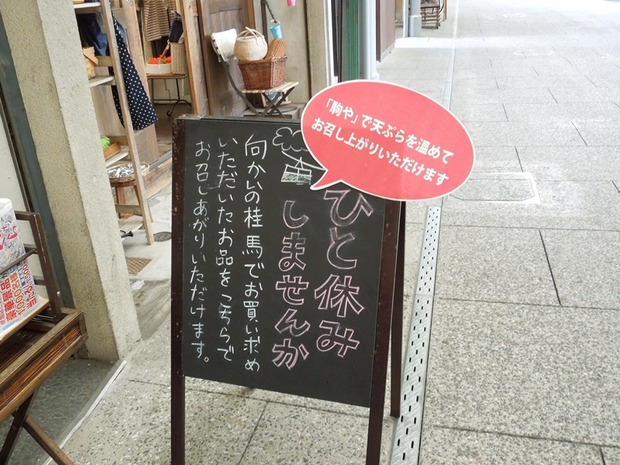 「胸や」で天ぷらを温めて
お召し上がりいただけます
ひと休み
しませんか
向かいの桂馬でお買い求め
いただいたお品をこちらで
お召しあがりいただけます。